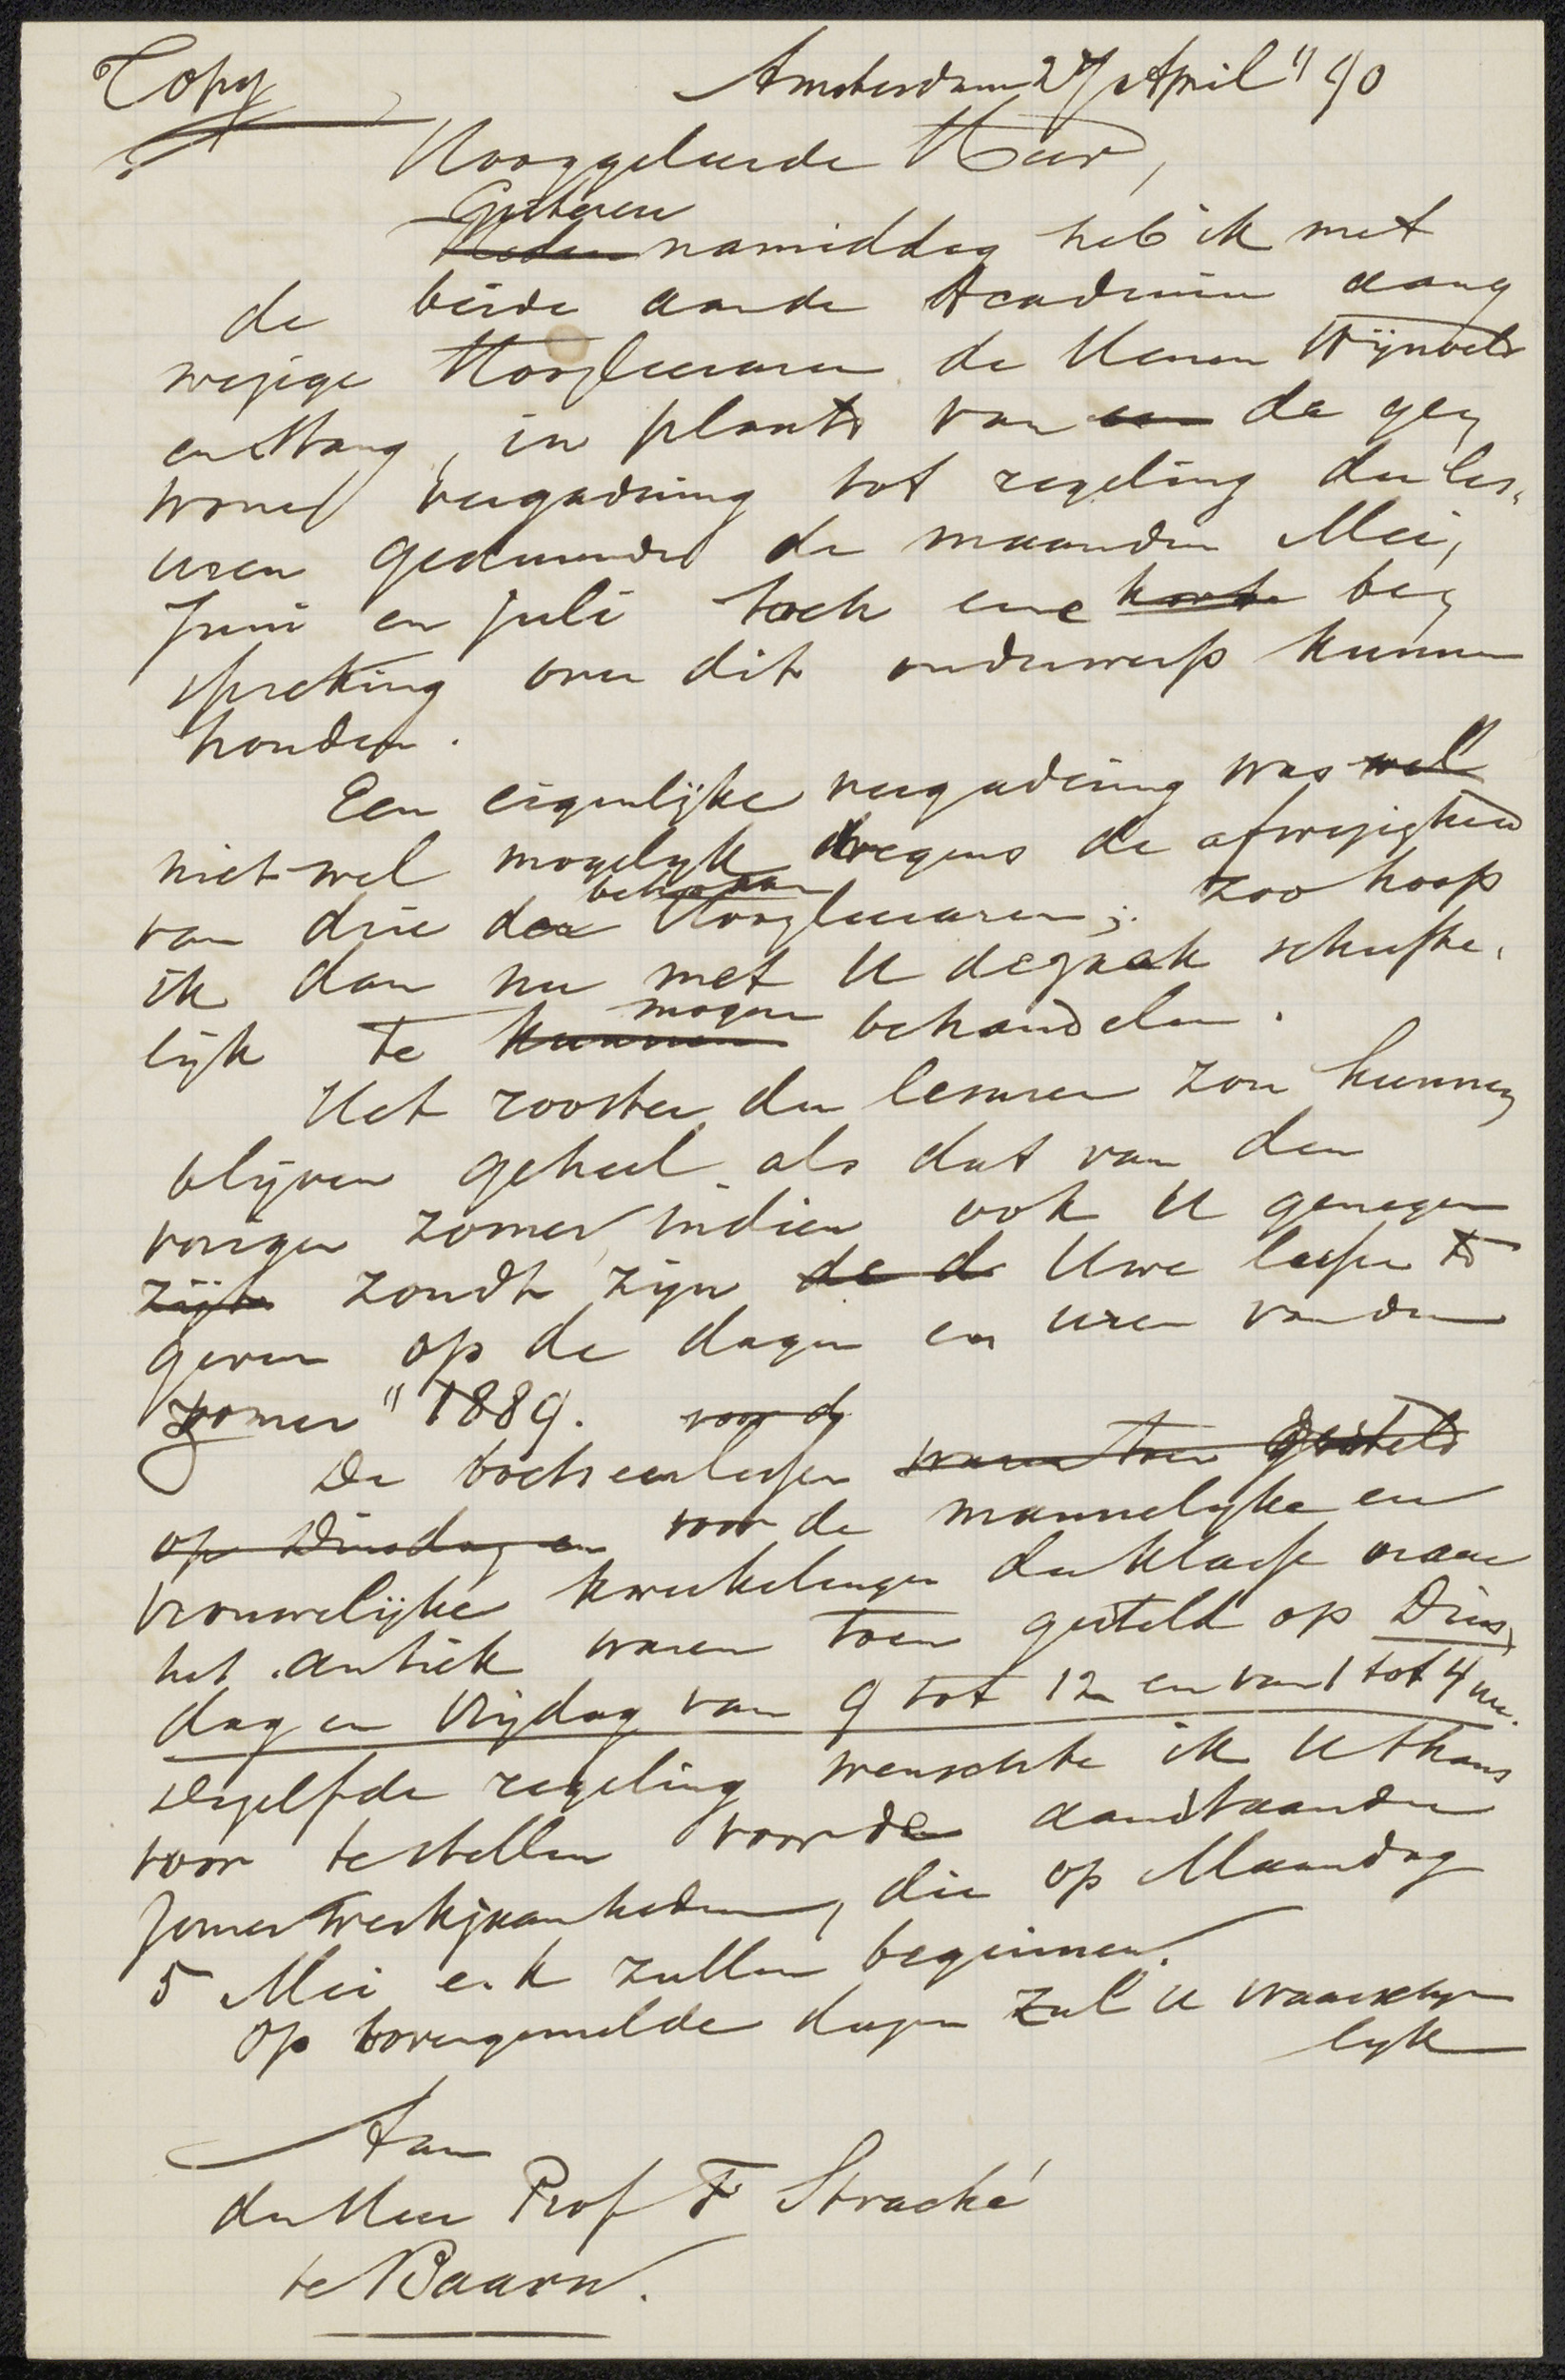 Copy
Amsterdam 27 April "90
Hooggeleerde Heer,
Gisteren
Heden namiddag heb ik met
de beide aan de Academie aan
wezige Hoogleeraren de Heeren Wijnveld
en Stang, in plaats van een de ge
wone vergadering tot regeling der les
uren gedurende de maanden Mei,
Juni en Juli toch eene korte be
spreking over dit onderwerp kunnen
houden.
Een eigenlijke vergadering was wel
niet wel mogelyk wegens de afwezigheid
van drie der Hoogleeraren; zoo hoop
ik dan nu met U de zaak schrifte
mogen
lijk te kunnen behandelen.
Het rooster der lesuren zou kunnen
blijven geheel als dat van den
vorigen zomer indien ook U genegen
zijt zoudt zijn de d Uwe lessen te
geven op de dagen en uren van den
zomer "1889. voor dy
De boetseerlessen waren toen gesteld
op Dinsdag en voor de mannelyke en
vrouwelijke kweekelingen der klasse naar
het antiek waren toen gesteld op Dins
dag en Vrijdag van 9 tot 12 en van 1 tot 4 ure.
Dezelfde regeling wenschte ik U thans
voor te stellen voor de aanstaande
zomerwerkzaamheden, die op Maandag
5 Mei e.k zullen beginnen.
Op bovengemelde dagen zal U waarschyn
lyk
Aan
den Heer Prof F Stracké
te Baarn.